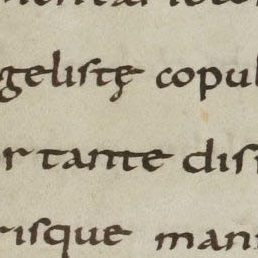 geliste copul
r tante dis
risque man